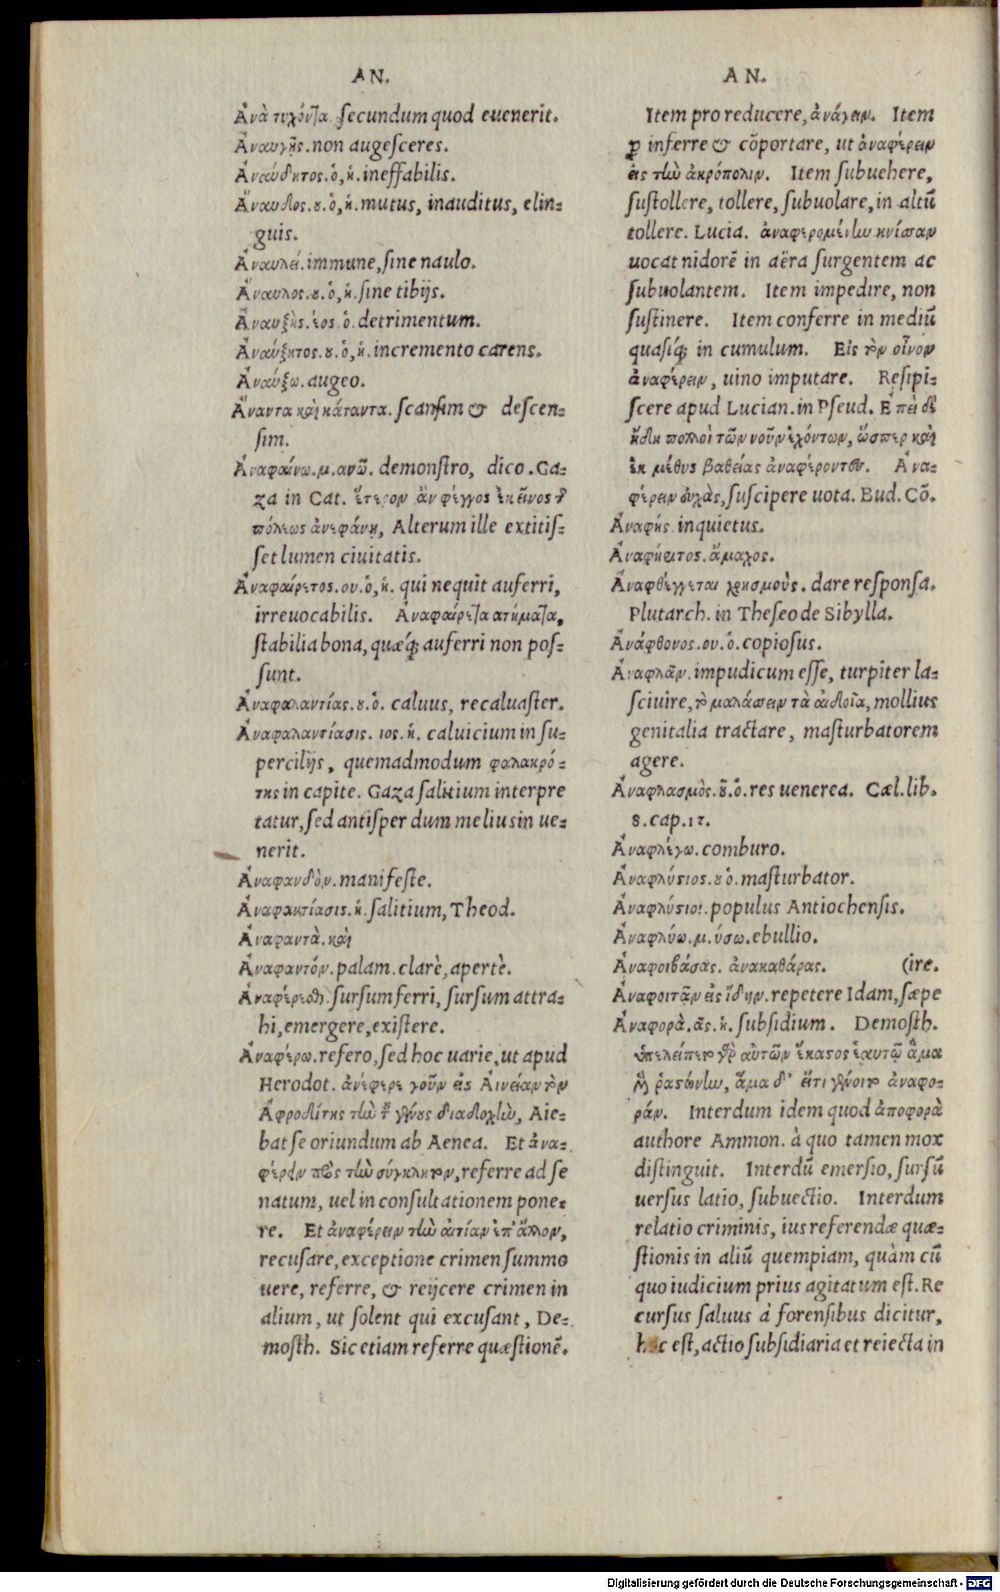 AN.
Ἀνὰ τυχόντα secundum quod euenerit.
Ἀναυγῆς. non augesceres.
Ἀναύδητος. ὁ, ἡ. ineffabilis.
Ἄναυδος. ου. ὁ, ἡ. mutus, inauditus, elin-
guis.
Ἀναυλεί. immune, sine naulo.
Ἄναυλος. ου. ὁ, ἡ. sine tibijs.
Ἀναυξὴς. έος. ὁ. detrimentum.
Ἀναύξητος. ου. ὁ, ἡ. incremento carens.
Ἀναύξω. augeo.
Ἄναντα καὶ κάταντα. scansim & descen-
sim.
Ἀναφαίνω. μ. ανῶ. demonstro, dico. Ga-
za in Cat. ἕτερον ἂν φέγγος ἐκεῖνος τ͂
πόλεως ἀνεφάνη, Alterum ille extitis-
set lumen ciuitatis.
Ἀναφαίρετος. ου. ὁ, ἡ. qui nequit auferri,
irreuocabilis. Ἀναφαίρετα ατήματα,
stabilia bona, quæq; auferri non pos-
sunt.
Ἀναφαλαντίας. ου. ὁ. caluus, recaluaster.
Ἀναφαλαντίασις. ιος. ἡ. caluicium in su-
percilijs, quemadmodum φαλακρό-
της in capite. Gaza salitium interpre
tatur, sed antisper dum melius in ue-
nerit.
Ἀναφανδὸν. manifeste.
Ἀναφαντίασις. ἡ. salitium, Theod.
Ἀναφαντὰ. καὶ
Ἀναφαντόν. palam. clarè, apertè.
Ἀναφέρεσθ. sursum ferri, sursum attra-
hi, emergere, existere.
Ἀναφέρω. refero, sed hoc uarie, ut apud
Herodot. ἀνέφερε γοῦν εἰς Αἰνείαν τὸν
Ἀφροδίτης τὴν τ͂ γένους διαδοχὴν, Aie-
bat se oriundum ab Aenea. Et ἀνα-
φέρειν πρὸς τὴν σύγκλητον, referre ad se
natum, uel in consultationem pone-
re. Et ἀναφέρειν τὴν αἰτίαν ἐπ’ ἄλλον,
recusare, exceptione crimen summo
uere, referre, & reijcere crimen in
alium, ut solent qui excusant, De-
mosth. Sic etiam referre quæstionē.
AN.
Item pro reducere, ἀνάγειν. Item
ꝓ inferre & cōportare, ut ἀναφέρειν
εἰς τὴν ἀκρόπολιν. Item subuehere,
sustollere, tollere, subuolare, in altū
tollere. Lucia. ἀναφερομένην κνίσσαν
uocat nidorē in aëra surgentem ac
subuolantem. Item impedire, non
sustinere. Item conferre in mediū
quasíq; in cumulum. Εἰς τὸν οἶνον
ἀναφέρειν, uino imputare. Resipi-
scere apud Lucian. in Pseud. Ἐπεὶ δὲ
ἤδη πολλοὶ τῶν νοῦν ἐχόντων, ὥσπερ καὶ
ἐκ μέθυς βαθείας ἀναφέροντες. Ἀνα-
φέρειν εὐχὰς, suscipere uota. Bud. Cō.
Ἀναφὴς. inquietus.
Ἀναφήϊτος. ἄμαχος.
Ἀναφθέγγεται χρησμοὺς. dare responsa.
Plutarch. in Theseo de Sibylla.
Ἀνάφθονος. ου. ὁ. copiosus.
Ἀναφλᾶν. impudicum esse, turpiter la-
sciuire, τὸ μαλάσσειν τὰ αἰδοῖα, mollius
genitalia tractare, masturbatorem
agere.
Ἀναφλασμὸς. οῦ. ὁ. res uenerea. Cæl. lib.
8. cap. 17.
Ἀναφλέγω. comburo.
Ἀναφλύστιος. ου ὁ. masturbator.
Ἀναφλύστιοι. populus Antiochensis.
Ἀναφλύω. μ. ύσω. ebullio.
Ἀναφοιβάσας. ἀνακαθάρας. (ire.
Ἀναφοιτᾶν εἰς ἴδην. repetere Idam, sæpe
Ἀναφορὰ. ᾶς. ἡ. subsidium. Demosth.
ὑπελείπετο γὰρ αὐτῶν ἕκαστος ἑαυτῷ ἅμα
μὲν ῥαστώνην, ἅμα δ’ εἴτι γένοιτο ἀναφο-
ράν. Interdum idem quod ἀποφορὰ
authore Ammon. à quo tamen mox
distinguit. Interdū emersio, sursū
uersus latio, subuectio. Interdum
relatio criminis, ius referendæ quæ-
stionis in aliū quempiam, quàm cū
quo iudicium prius agitatum est. Re
cursus saluus à forensibus dicitur,
hoc est, actio subsidiaria et reiecta in
Digitalisierung gefördert durch die Deutsche Forschungsgemeinschaft - DFG